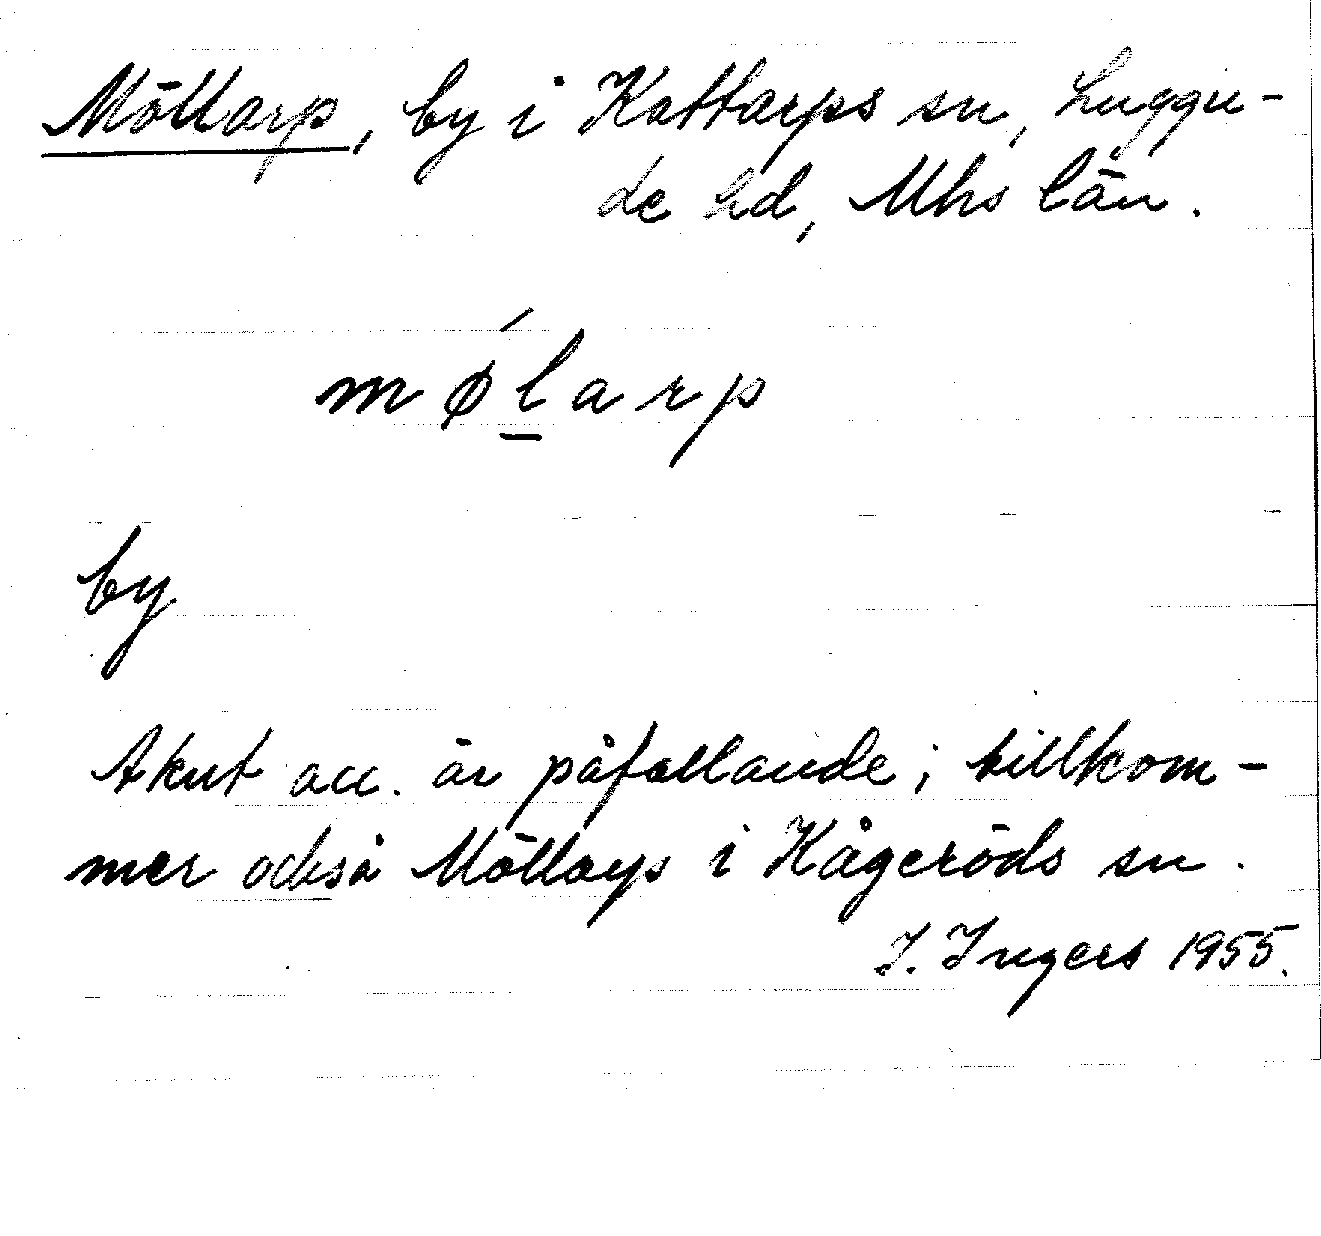 Möllarp, by i Kattarps sn, Luggu-
de hd, Mhs län.
møĺ̲arp
by
Akut acc. är påfallande; tillkom-
mer också Möllarp i Kågeröds sn.
I. Ingers 1955.